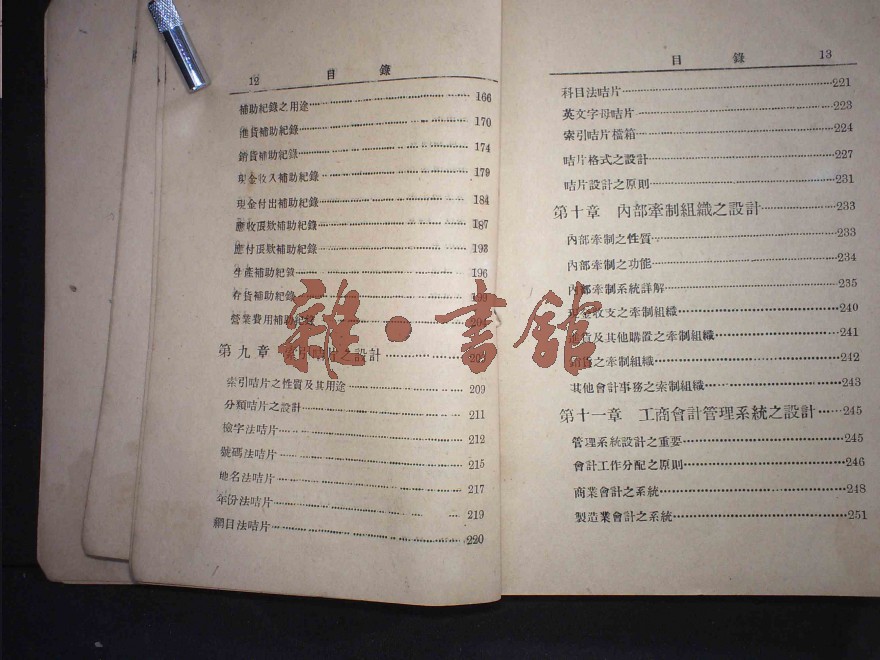 12 目錄
補助紀錄之用途 166
進貨補助紀錄 170
銷貨補助紀錄 174
現金收入補助紀錄 179
現金付出補助紀錄 184
應收賬款補助紀錄 187
應付賬款補助紀錄 193
生產補助紀錄 196
存貨補助紀錄 199
營業費用補助紀錄 204
第九章 索引咭片之設計 209
索引咭片之性質及其用途 209
分類咭片之設計 211
檢字法咭片 212
號碼法咭片 215
地名法咭片 217
年份法咭片 219
綱目法咭片 220
目錄 13
科目法咭片 221
英文字母咭片 223
索引咭片檔箱 224
咭片格式之設計 227
咭片設計之原則 231
第十章 內部牽制組織之設計 233
內部牽制之性質 233
內部牽制之功能 234
內部牽制系統詳解 235
現金收支之牽制組織 240
進貨及其他購置之牽制組織 241
銷貨之牽制組織 242
其他會計事務之索制組織 243
第十一章 工商會計管理系統之設計 245
管理系統設計之重要 245
會計工作分配之原則 246
商業會計之系統 248
製造業會計之系統 251
雜·書館